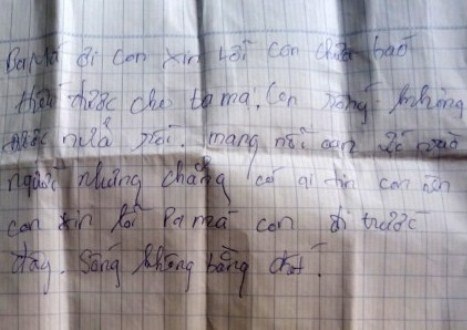 Ba Má ơi con xin lỗi con chưa báo
hiếu được cho ba má. Con sống không
được nữa rồi. mang nỗi oan ức vào
người nhưng chẳng có ai tin con nên
con xin lỗi Ba má con đi trước
đây. Sống không bằng chết.